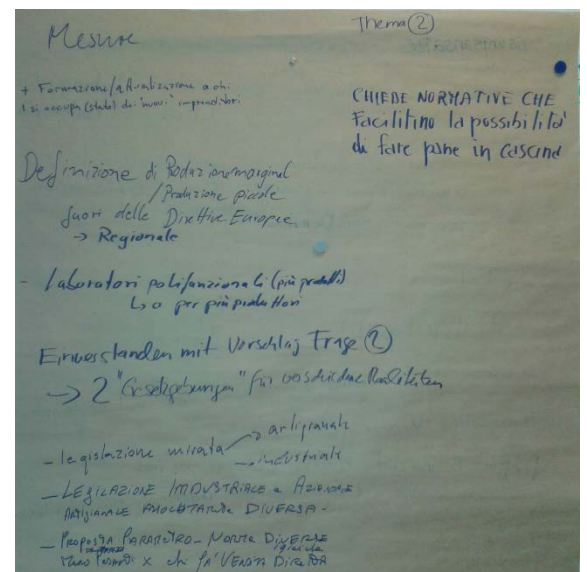 Mesure
Thema ②
+ Formazione/attualizzazione a chi
si occupa (stato) dei "nuovi" imprenditori
CHIEDE NORMATIVE CHE
Facilitino la possibilità
di fare pane in cascina
Definizione di Produzione marginal
/Produzione piccole
fuori delle Direttive Europee
→ Regionale
- laboratori polifunzionali (più prodotti)
↳ o per più produttori
Einverstanden mit Vorschlag Frage ②
→ 2 "Gesetzgebungen" für verschiedene Realitäten
- legislazione mirata → artigianale
→ industriale
- LEGISLAZIONE INDUSTRIALE e AZIENDE
ARTIGIANALE DIVERSA -
- PROPOSTA PARAMETRO - NORME DIVERSE
x chi FA' VENDITA DIRETTA